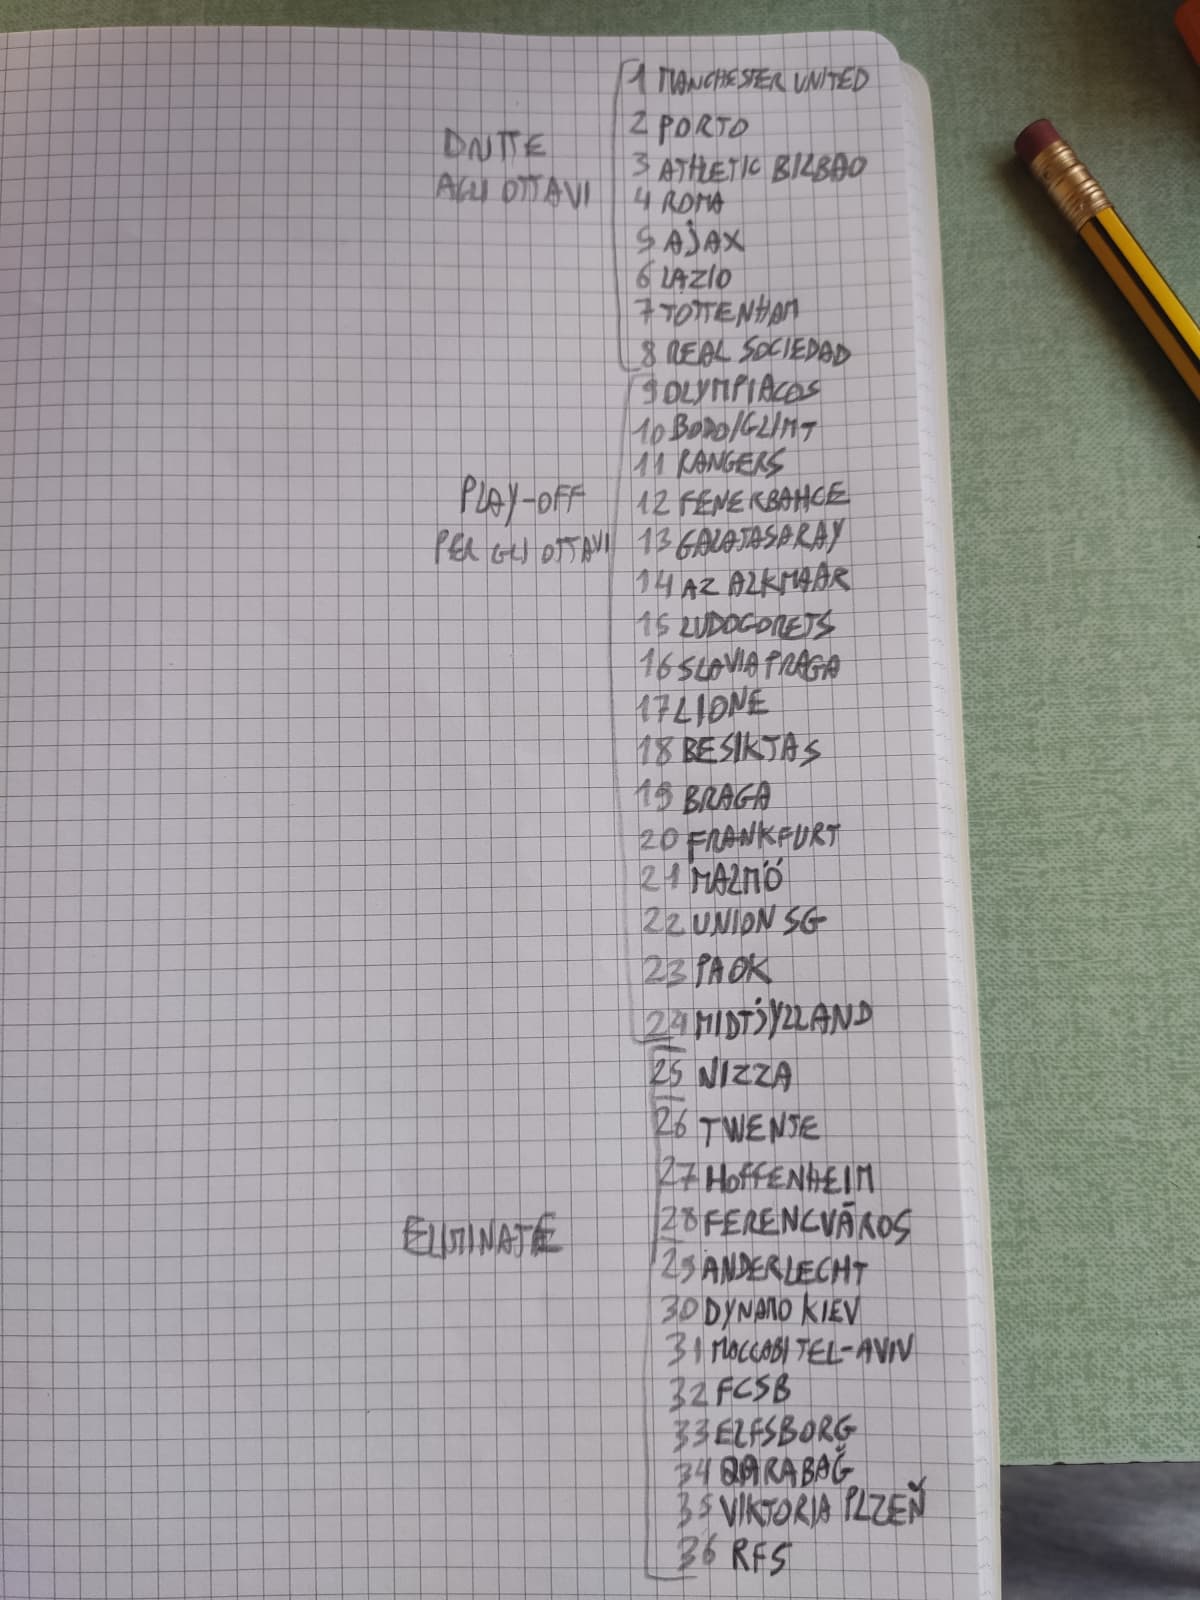 1 MANCHESTER UNITED
2 PORTO
3 ATHLETIC BILBAO
4 ROMA
5 AJAX
6 LAZIO
7 TOTTENHAM
8 REAL SOCIEDAD
DRITTE
AGLI OTTAVI
9 OLYMPIACOS
10 BODO/GLIMT
11 RANGERS
12 FENERBAHCE
13 GALATASARAY
14 AZ ALKMAAR
15 LUDOGORETS
16 SLAVIA PRAGA
17 LIONE
18 BESIKTAS
19 BRAGA
20 FRANKFURT
21 MALMÖ
22 UNION SG
23 PAOK
24 MIDTJYLLAND
PLAY-OFF
PER GLI OTTAVI
25 NIZZA
26 TWENTE
27 HOFFENHEIM
28 FERENCVÁROS
29 ANDERLECHT
30 DYNAMO KIEV
31 MACCABI TEL-AVIV
32 FCSB
33 ELFSBORG
34 QARABAĞ
35 VIKTORIA PLZEŇ
36 RFS
ELIMINATE